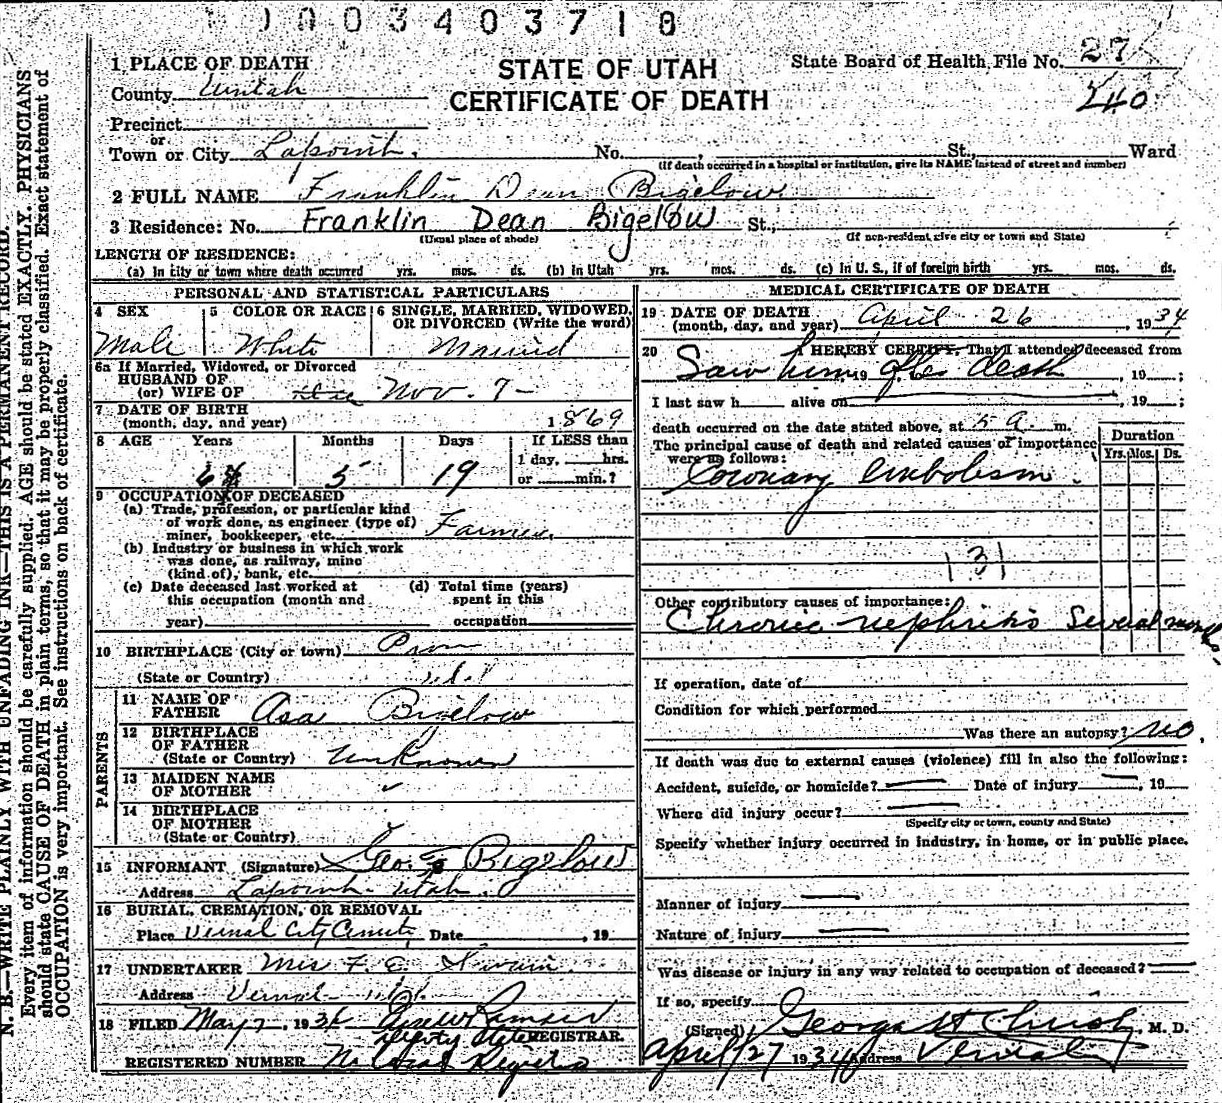 1 0 0 3 4 0 3 7 1 8
1 PLACE OF DEATH
STATE OF UTAH
State Board of Health File No. 27
County Uintah
CERTIFICATE OF DEATH
240
Precinct
or
Town or City Lapoint. No. St., Ward
(If death occurred in a hospital or institution, give its NAME instead of street and number)
2 FULL NAME Franklin Dean Bigelow
3 Residence: No. Franklin Dean Bigelow St.,
(Usual place of abode) (If non-resident give city or town and State)
LENGTH OF RESIDENCE:
(a) In city or town where death occurred yrs. mos. ds. (b) In Utah yrs. mos. ds. (c) In U. S., if of foreign birth yrs. mos. ds.
PERSONAL AND STATISTICAL PARTICULARS
4 SEX
Male
5 COLOR OR RACE
White
6 SINGLE, MARRIED, WIDOWED, OR DIVORCED (Write the word)
Married
6a If Married, Widowed, or Divorced
HUSBAND OF
(or) WIFE OF Nov. 7-
7 DATE OF BIRTH
(month, day, and year) 1869
8 AGE Years Months Days If LESS than
1 day, hrs.
or min.?
64 5 19
9 OCCUPATION OF DECEASED
(a) Trade, profession, or particular kind
of work done, as engineer (type of)
miner, bookkeeper, etc. Farmer.
(b) Industry or business in which work
was done, as railway, mine
(kind of), bank, etc.
(c) Date deceased last worked at
this occupation (month and
year)
(d) Total time (years)
spent in this
occupation
10 BIRTHPLACE (City or town)
(State or Country)
PARENTS
11 NAME OF
FATHER Asa Bigelow
12 BIRTHPLACE
OF FATHER
(State or Country) Unknown
13 MAIDEN NAME
OF MOTHER
14 BIRTHPLACE
OF MOTHER
(State or Country)
15 INFORMANT (Signature) Geo. F Bigelow
Address Lapoint - Utah.
16 BURIAL, CREMATION, OR REMOVAL
Place Vernal City Cemetery Date , 19
17 UNDERTAKER Mrs F. E. Swain
Address Vernal
18 FILED May 7, 1934
Deputy State REGISTRAR.
REGISTERED NUMBER No Local Registrar
MEDICAL CERTIFICATE OF DEATH
19 DATE OF DEATH
(month, day, and year) April 26 1934
20 I HEREBY CERTIFY, That I attended deceased from
Saw him, 19 after death, 19 ;
I last saw h alive on , 19 ;
death occurred on the date stated above, at 5 a. m.
The principal cause of death and related causes of importance
were as follows:
Duration
Yrs. Mos. Ds.
Coronary embolism.
131
Other contributory causes of importance:
Chronic nephritis Several months.
If operation, date of
Condition for which performed
Was there an autopsy? no.
If death was due to external causes (violence) fill in also the following:
Accident, suicide, or homicide? Date of injury , 19
Where did injury occur?
(Specify city or town, county and State)
Specify whether injury occurred in industry, in home, or in public place.
Manner of injury
Nature of injury
Was disease or injury in any way related to occupation of deceased?
If so, specify
(Signed) George H Christy, M. D.
April/27 1934 Address Vernal
N. B.—WRITE PLAINLY WITH UNFADING INK—THIS IS A PERMANENT RECORD.
Every item of information should be carefully supplied. AGE should be stated EXACTLY. PHYSICIANS
should state CAUSE OF DEATH in plain terms, so that it may be properly classified. Exact statement of
OCCUPATION is very important. See instructions on back of certificate.